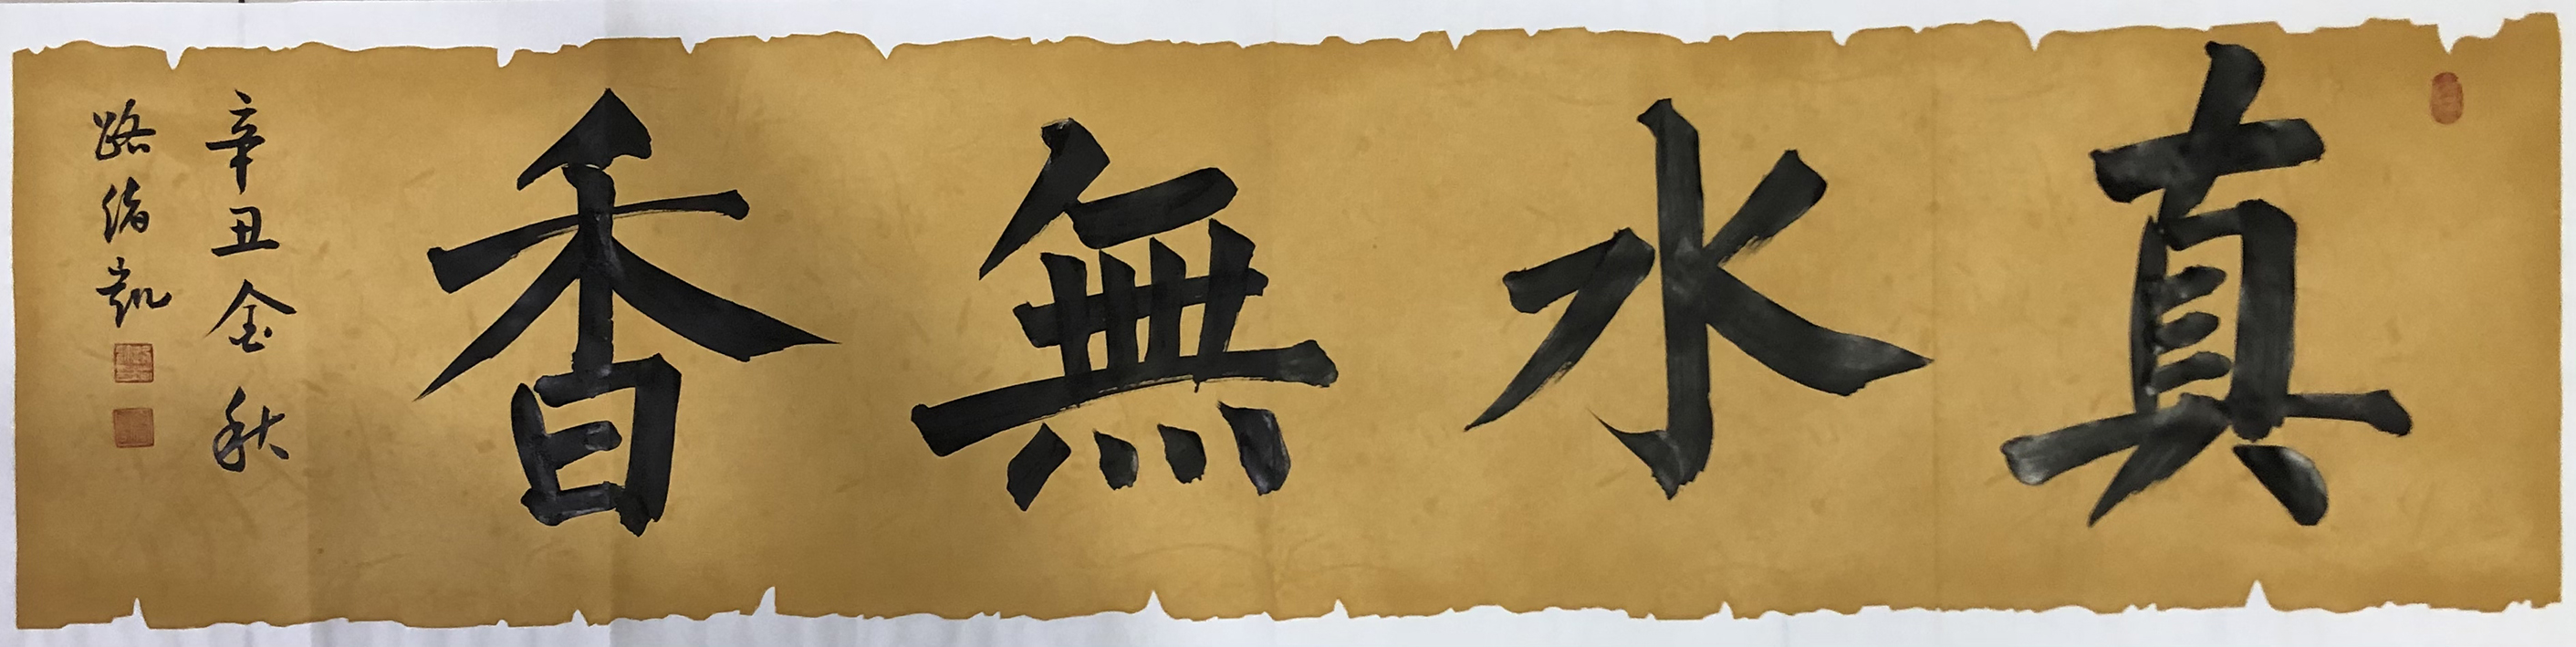 真水無香
辛丑金秋
路绪凯